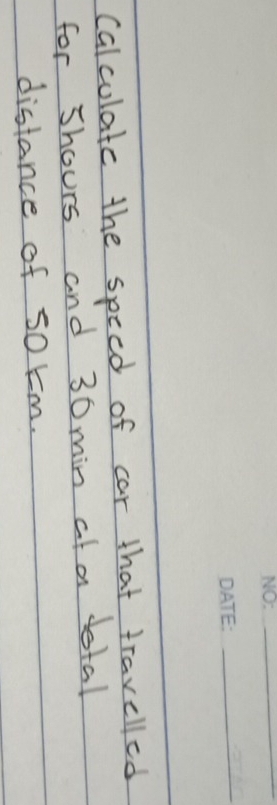 NO:
DATE:
Calculate the speed of car that travelled
for 5hours and 30min at a total
distance of 50km.